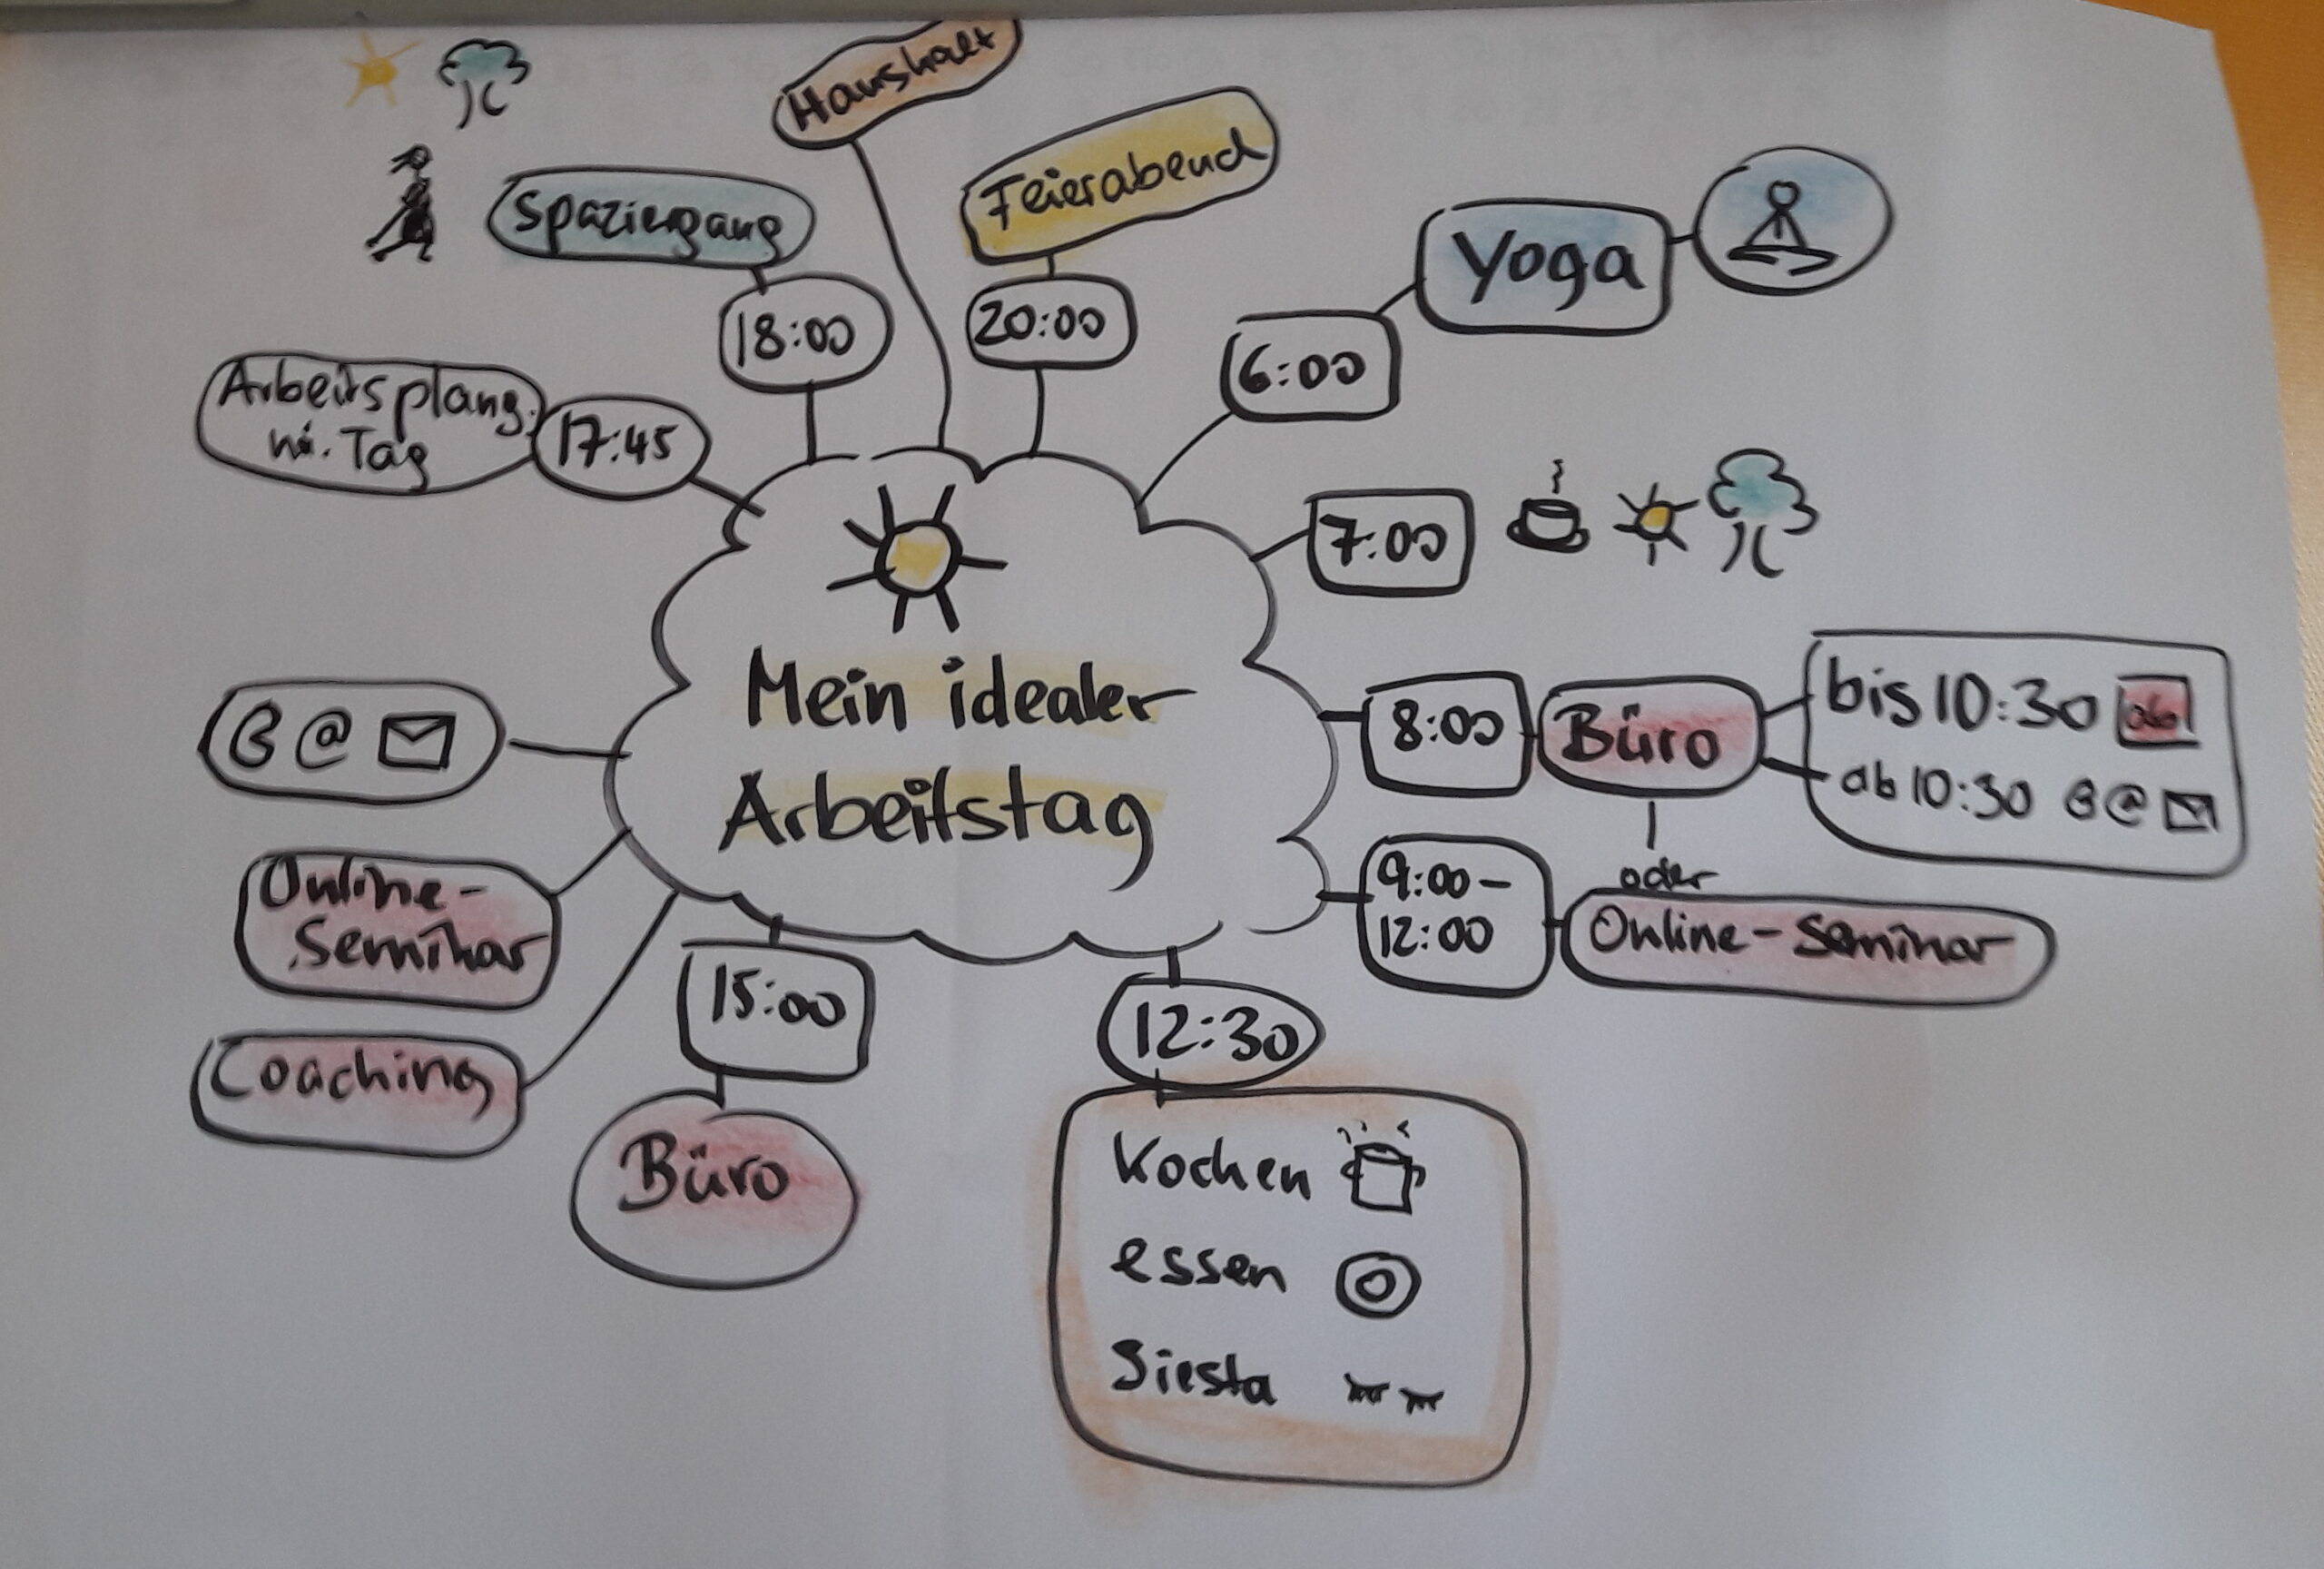 Mein idealer
Arbeitstag
6:00
Yoga
7:00
8:00
Büro
bis 10:30
ab 10:30 @
oder
9:00-
12:00
Online-Seminar
12:30
Kochen
essen
Siesta
15:00
Büro
Coaching
Online-
Seminar
@
17:45
Arbeitsplang.
Tag
18:00
Spaziergang
Haushalt
20:00
Feierabend